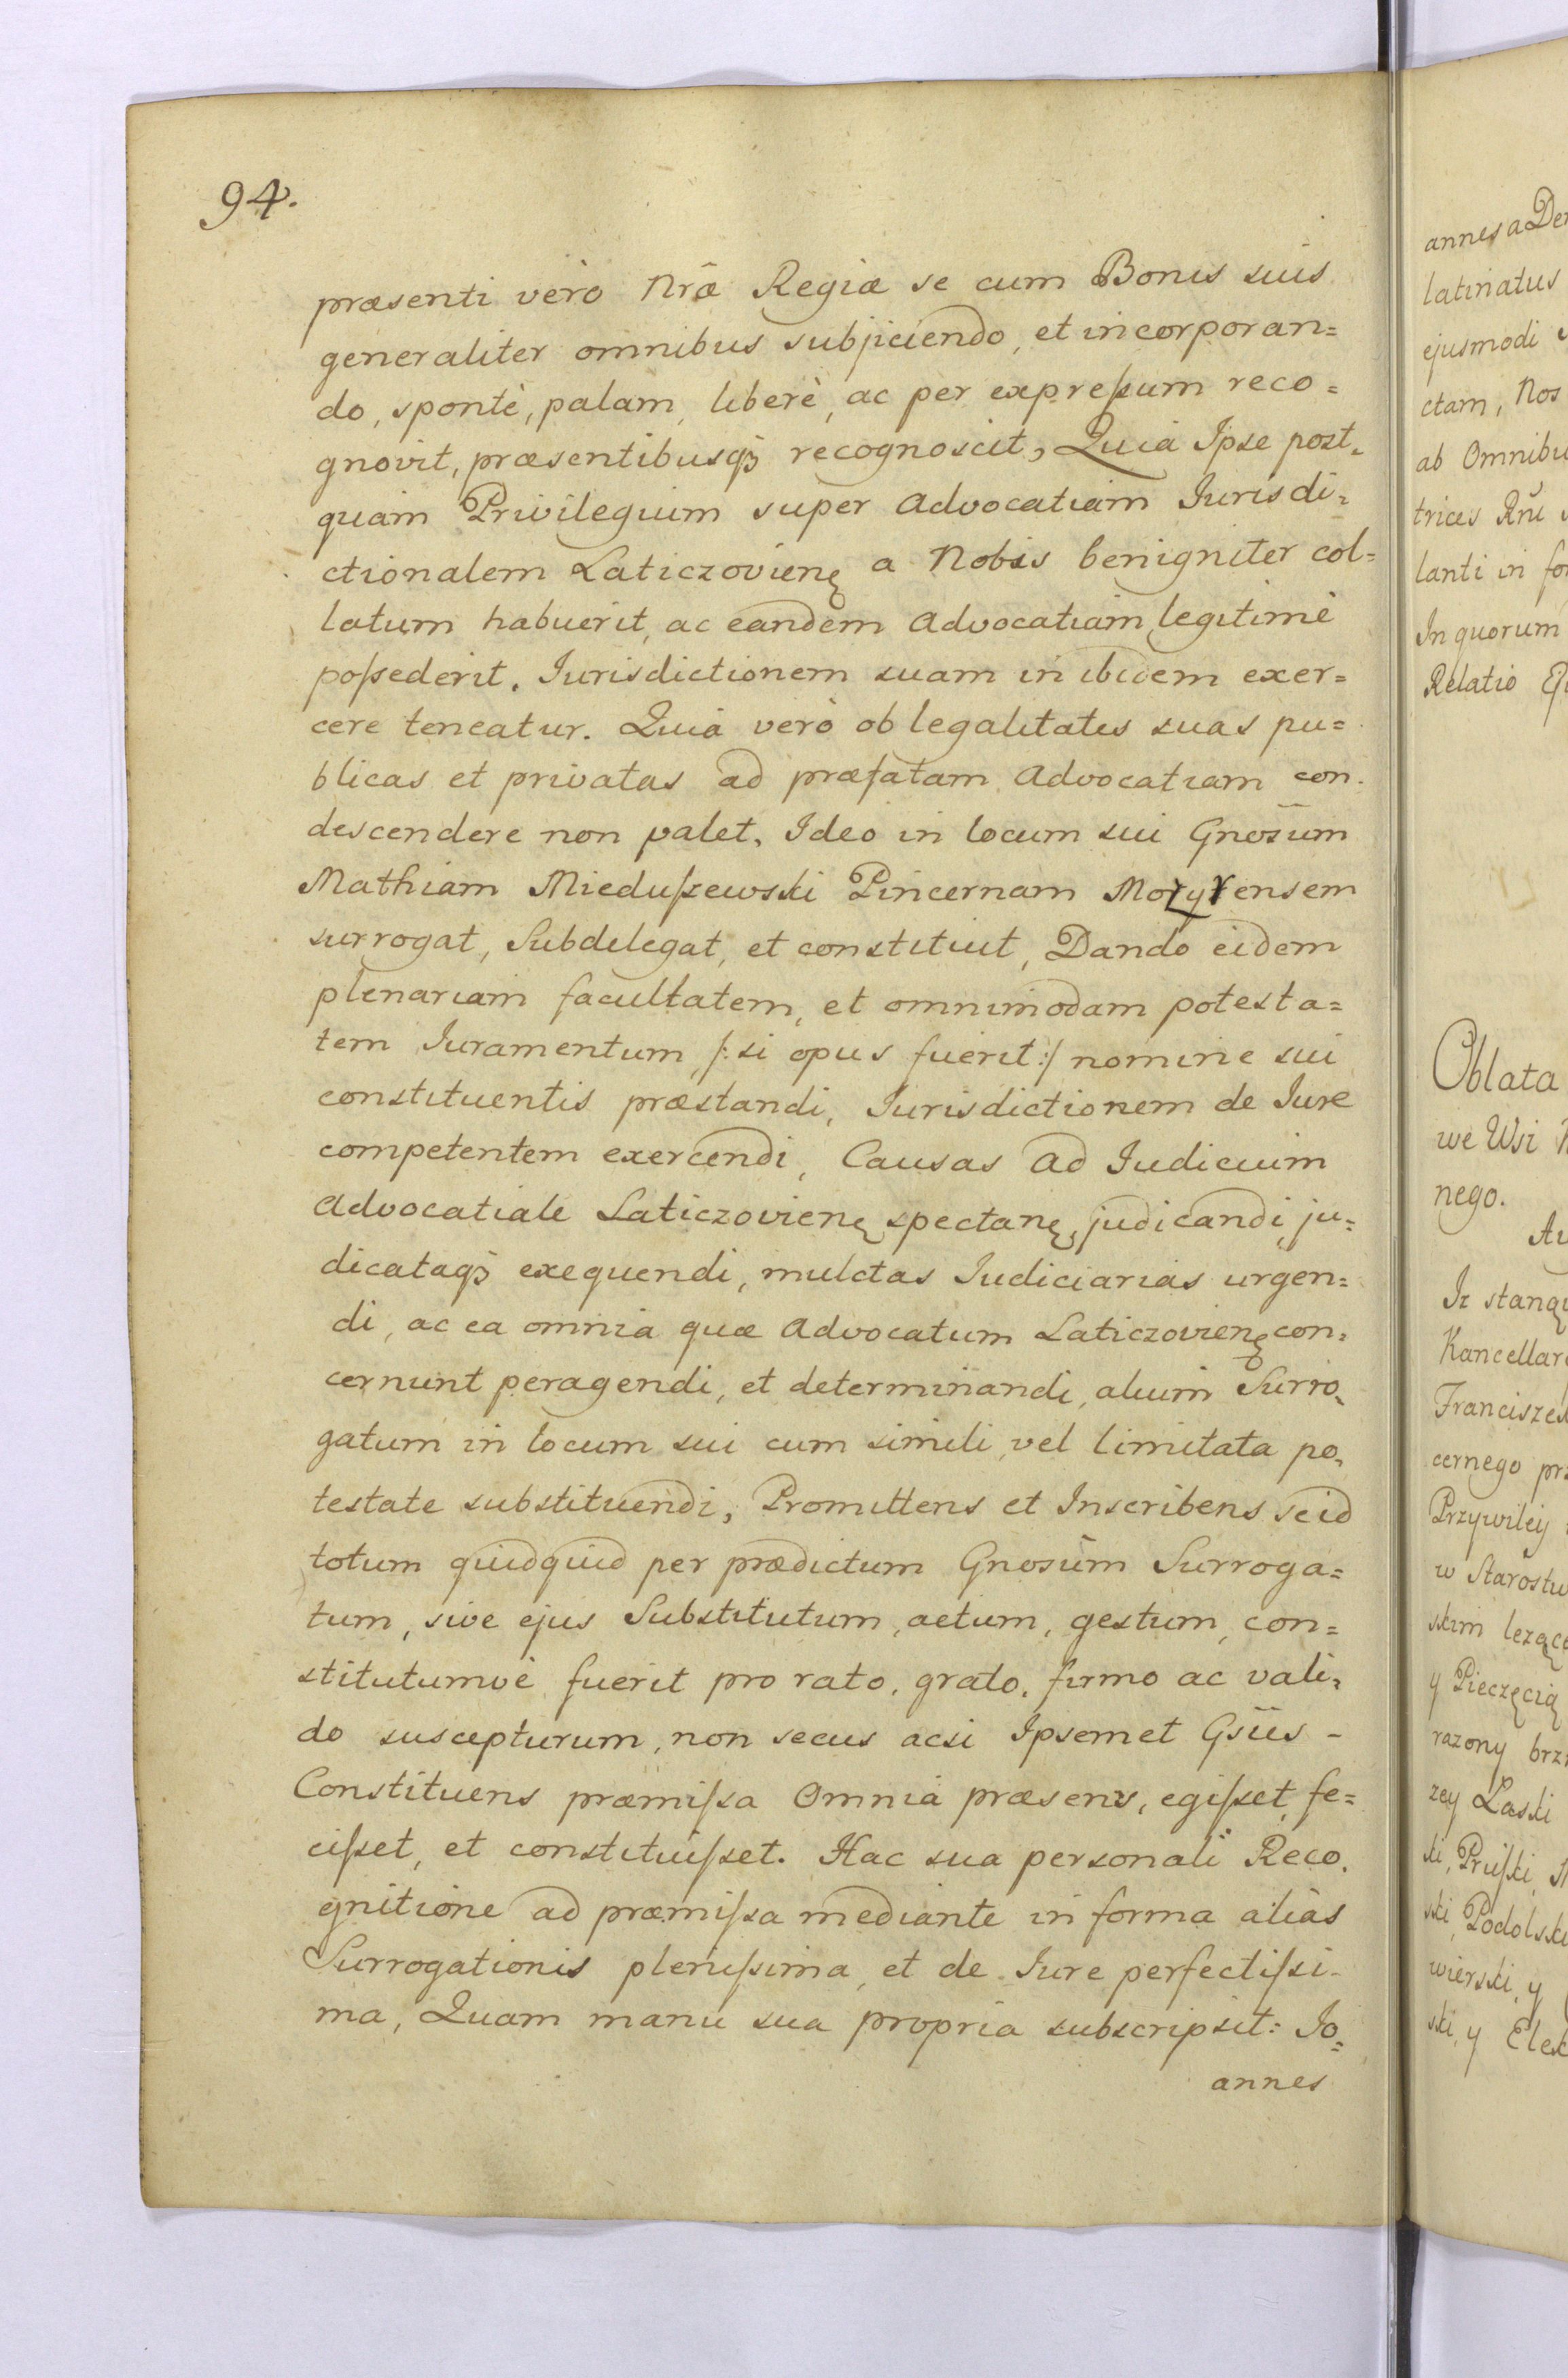 94.
præsenti verò Nrã Regiæ se cum Bonis suis
generaliter omnibus subjiciendo, et incorporan=
do, spontè, palam, liberè, ac per expreſsum reco=
gnovit, præsentibusqꝫ recognoscit, Quia Ipse post=
quam Privilegium super Advocatiam Iurisdi=
ctionalem Laticzovienę a Nobis benigniter col=
latum habuerit, ac eandem Advocatiam legitimè
poſsederit. Iurisdictionem suam in ibidem exer=
cere teneatur. Quia verò ob legalitates suas pu=
blicas et privatas ad præfatam Advocatiam con.
descendere non valet. Ideo in locum sui Gnosum
Mathiam Mieduſzewski Pincernam Mozyrensem
surrogat, Subdelegat, et constituit, Dando eidem
plenariam facultatem, et omnimodam potesta=
tem Iuramentum /: si opus fuerit :/ nomine sui
constituentis præstandi, Iurisdictionem de Iure
competentem exercendi, Causas ad Iudicium
Advocatiale Laticzovienę spectanę, judicandi, ju=
dicataqꝫ exequendi, mulctas Iudiciarias urgen=
di, ac ea omnia quæ Advocatum Laticzovienę con=
cernunt peragendi, et determinandi, alium Surro=
gatum in locum sui cum simili, vel limitata po=
testate substituendi, Promittens et Inscribens se id
totum quidquid per prædictum Gnosum Surroga=
tum, sive ejus Substitutum, actum, gestum, con=
stitutumvè fuerit pro rato, grato, firmo ac vali=
do suscepturum, non secus acsi Ipsemet Gsûs -
Constituens præmiſsa Omnia præsens, egiſset, fe=
ciſset, et constituiſset. Hac sua personali Reco.
gnitione ad præmiſsa mediante in forma aliàs
Surrogationis pleniſsima, et de Iure perfectiſsi-
ma, Quam manu sua propria subscripsit: Io=
annes
annes a
latinatus
ejusmodi
ctam, Nos
ab
trices Rñi
lanti in
In quorum
Relatio
Oblata
we Wsi
nego.
Franciszek
cernego
Przywiley
y Pieczęcią
razony
zey Laski
wierski, y